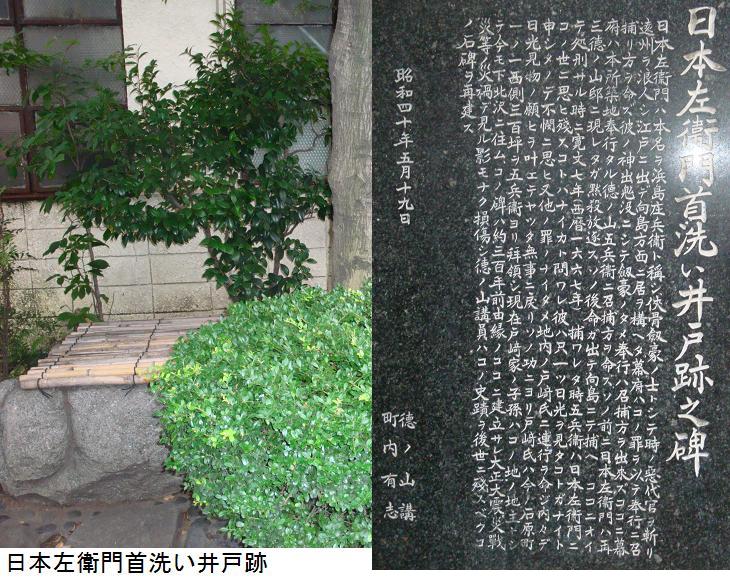 日本左衛門首洗い井戸跡之碑
日本左衛門ハ本名ヲ浜島庄兵衛ト稱シ侠骨劔豪ノ士トシテ時ノ惡代官ヲ斬リ
遠州ヲ浪人シ江戸ニ出デ向島方面ニ居ヲ構ヘタ幕府ハコノ罪ヲシテ奉行ニ召
捕リ方ヲ命ズ彼ノ神出鬼没ニシテ劔豪ノタメ奉行ハ召捕方ヲ出来ズココニ幕
府ハ本所築地奉行タル徳ノ山五兵衛ニ召捕方ヲ命ズソノ前ニ日本左衛門ハ再
三徳ノ山邸ニ現レタガ黙殺放逐スソノ後命ガ出テ向島ニテ捕ヘココニオイ
テ処刑サル時ニ寛文七年(西暦一六六七年)捕ワレタ時五兵衛ハ日本左衛門ニ
コノ世ニ思ヒ残スコトハナイカト問ワレ彼ハ只一ツ日光ヲ見タコトガナイト
申シタノデ不憫ニ思ヒ又他ノ罪ノナイタメ地内ノ戸﨑氏ニ連行ヲ命ジ内々デ
日光見物ノ願ヒヲ叶エテヤッタ無事ニ戻リソノ功ニヨリ戸﨑氏ハ今ノ石原町
一ノ一西側三百坪ヲ五兵衛ヨリ拜領シ現在戸﨑家ノ子孫ハコノ地ノ地主トシ
テ今モ下北沢ニ住ムコノ碑ハ約三百年前由縁ノココニ建立サレ大正大震火災戦
災等ノ火禍デ見ル影モナク損傷シ徳ノ山講員ハコノ史蹟ヲ後世ニ残スベクコ
ノ石碑ヲ再建ス
昭和四十年五月十九日
徳ノ山講
町内有志
日本左衛門首洗い井戸跡